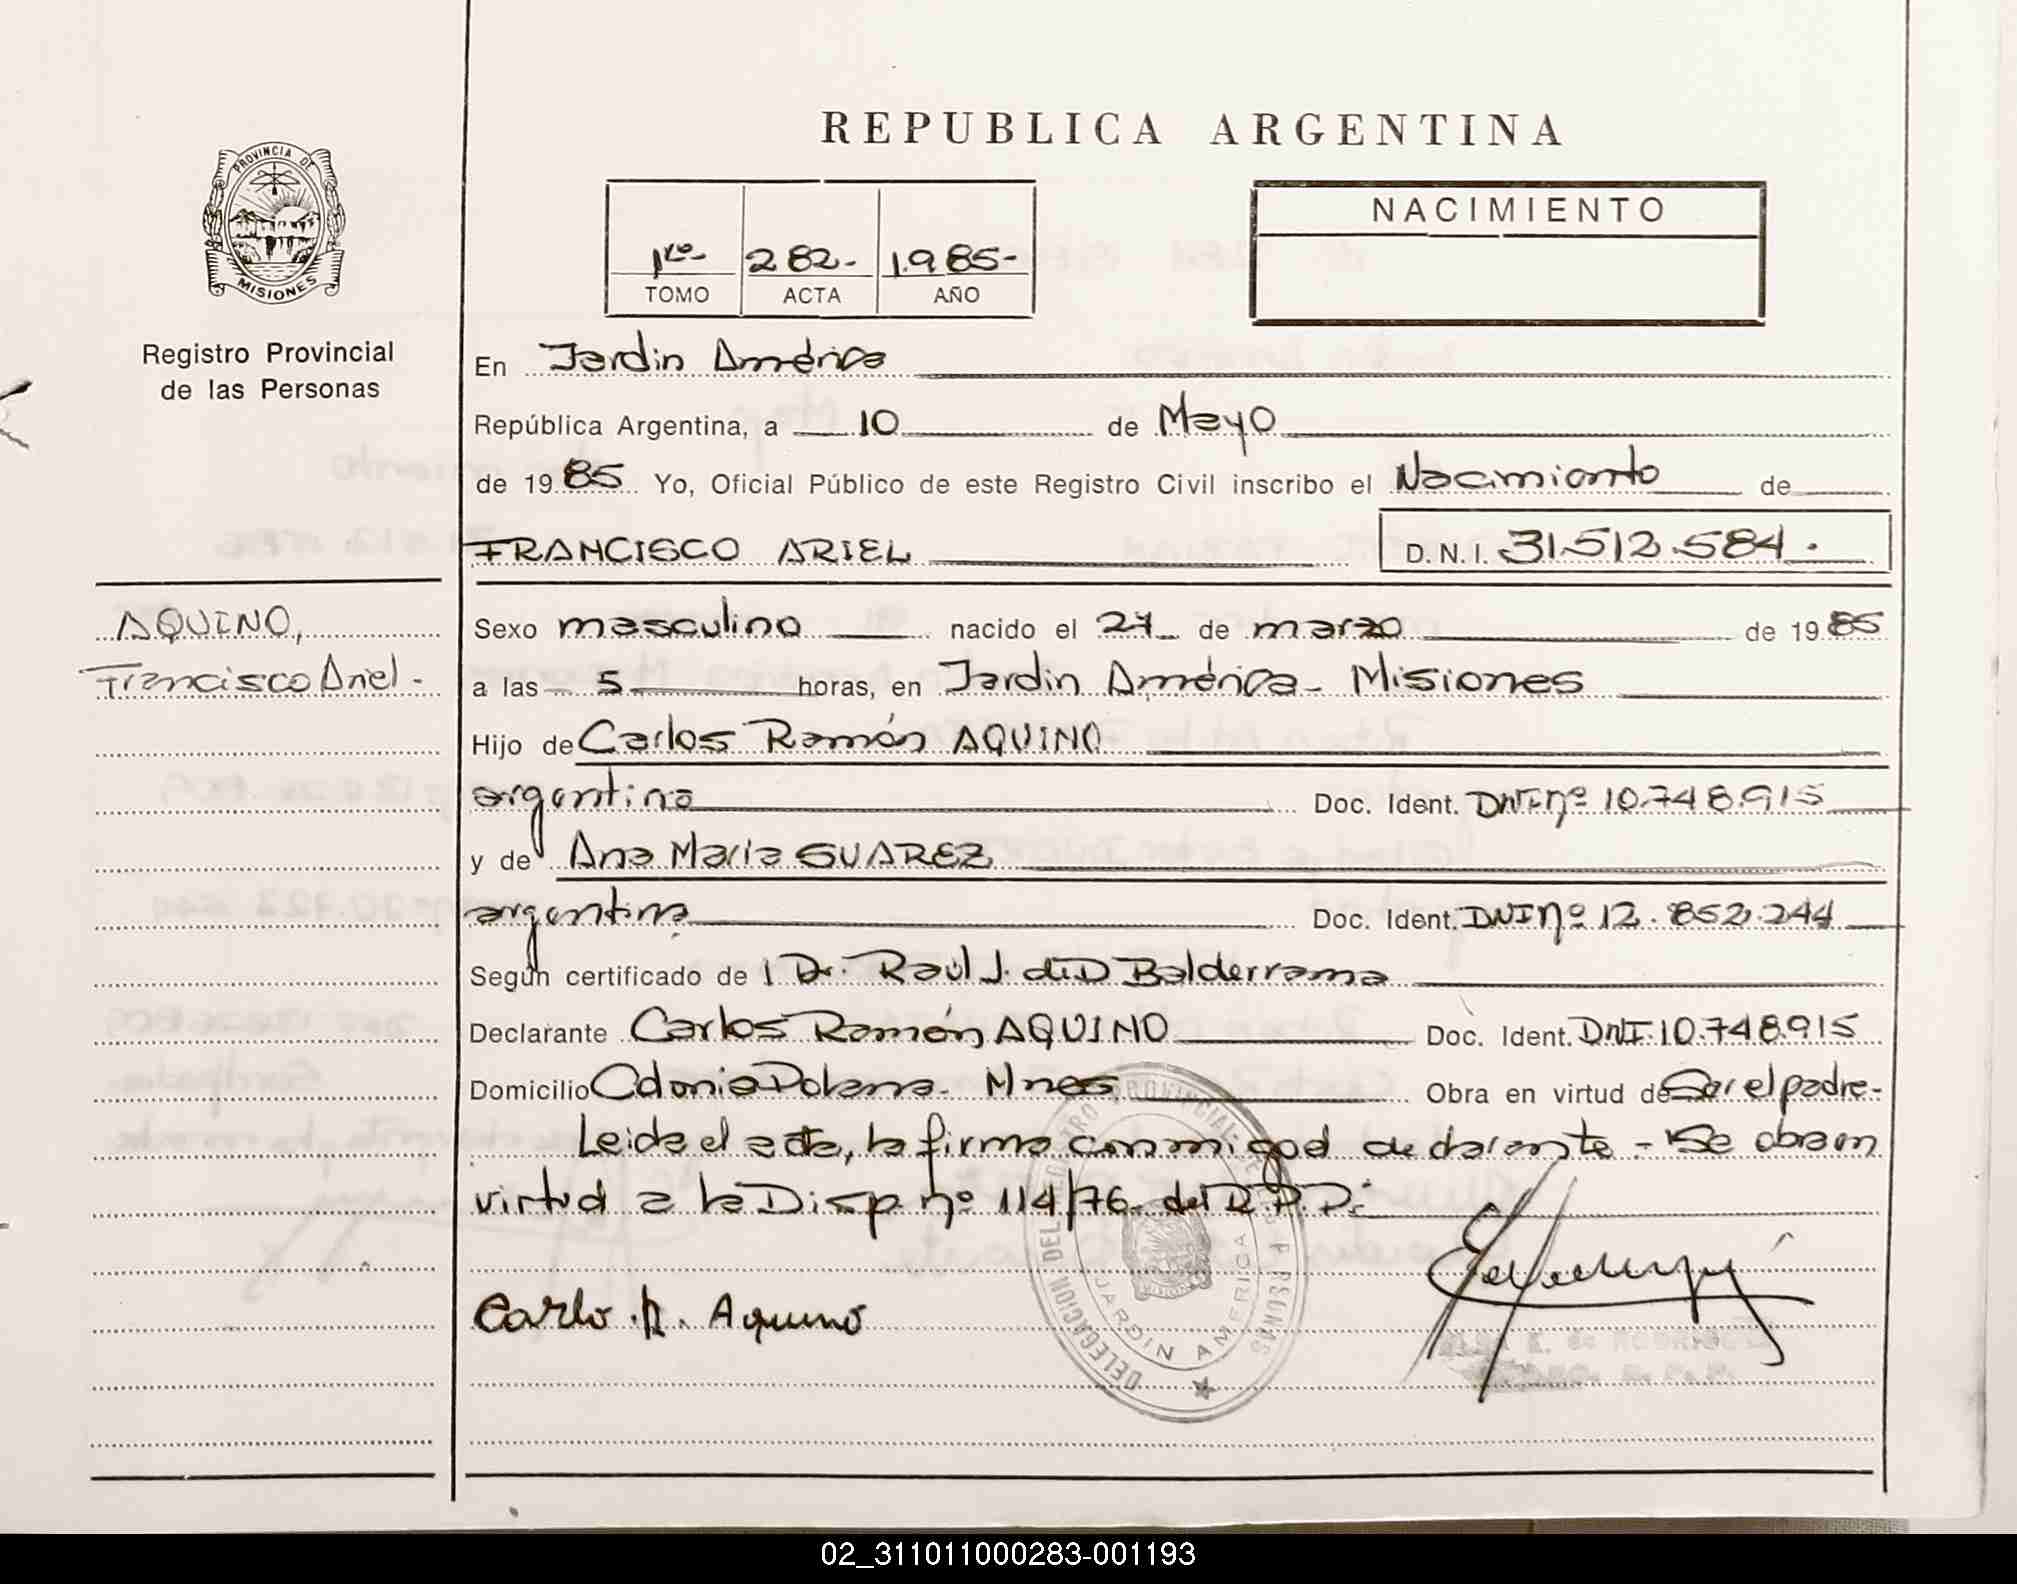 REPUBLICA ARGENTINA
PROVINCIA DE
MISIONES
Registro Provincial
de las Personas
1ro- 282- 1985-
TOMO ACTA AÑO
NACIMIENTO
En Jardin América
República Argentina, a 10 de Mayo
de 19 85 Yo, Oficial Público de este Registro Civil inscribo el Nacimiento de
FRANCISCO ARIEL D. N. I. 31.512.584.
AQUINO,
Francisco Ariel -
Sexo masculino nacido el 27 de marzo de 19 85
a las 5 horas, en Jardin América - Misiones
Hijo de Carlos Ramón AQUINO
argentino Doc. Ident. DNI nº 10.748.915
y de Ana Maria SUAREZ
argentina Doc. Ident. DNI nº 12.852.244
Según certificado de Dr. Raúl J. Balderrama
Declarante Carlos Ramón AQUINO Doc. Ident. DNI. 10.748.915
Domicilio Colonia Polana - Mnes. Obra en virtud de Ser el padre-
Leida el acta, la firma conmigo el declarante - Se obra en
virtud a la Disp. nº 114/76 del R.P.P.
Carlo R. Aquino
DELEGACION DEL REGISTRO PROVINCIAL DE LAS PERSONAS
JARDIN AMERICA
02_311011000283-001193